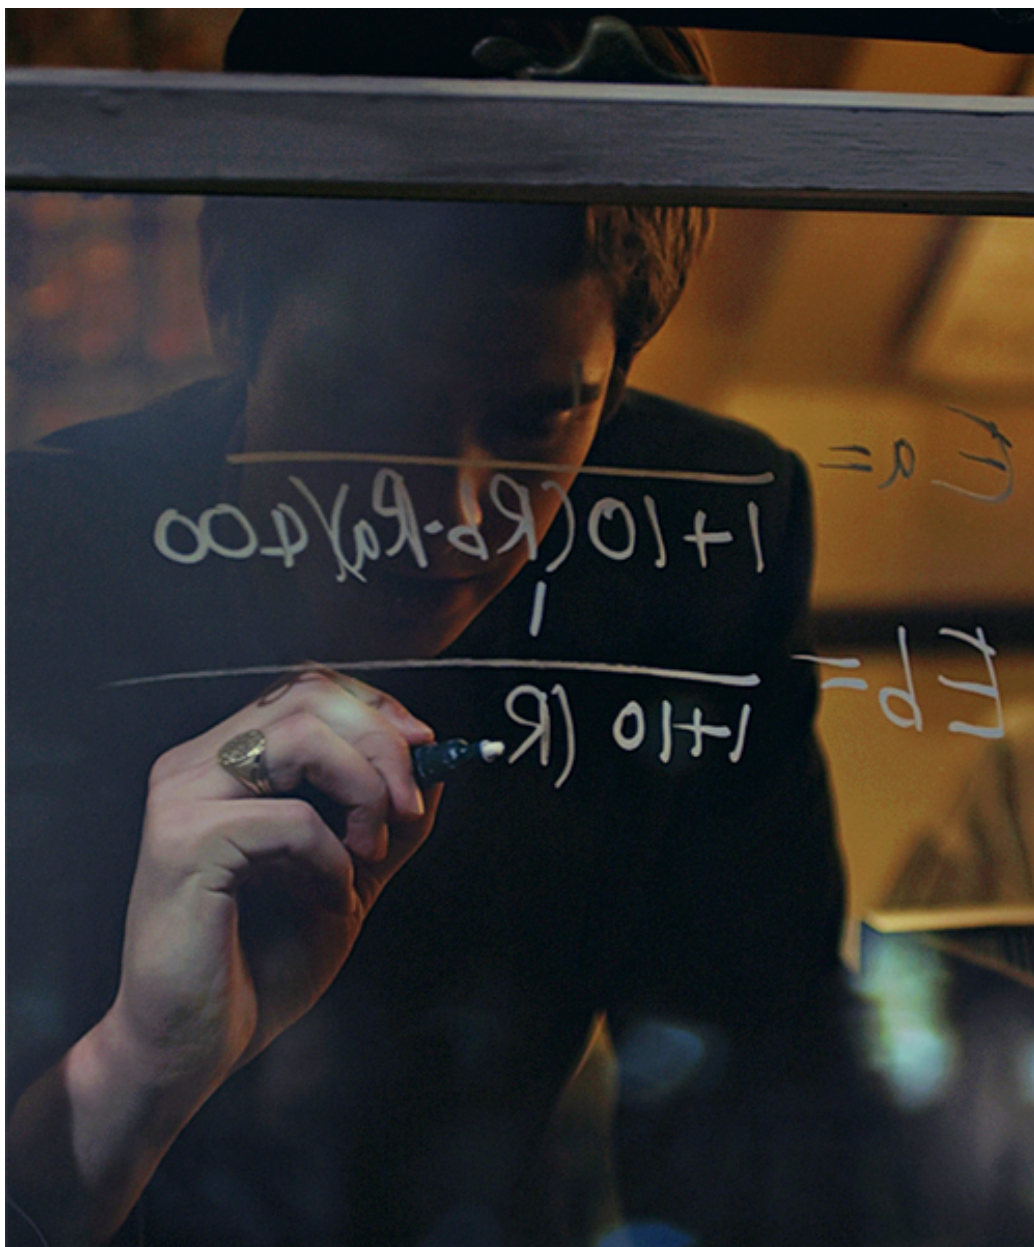 Ea =
1+10(Rb-Ra)/400
1
Eb =
1+10 (R